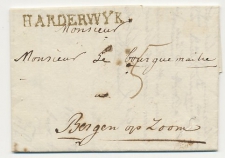 HARDERWYK
Monsieur
Monsieur Le bourguemaitre
5
a
Bergen op Zoom